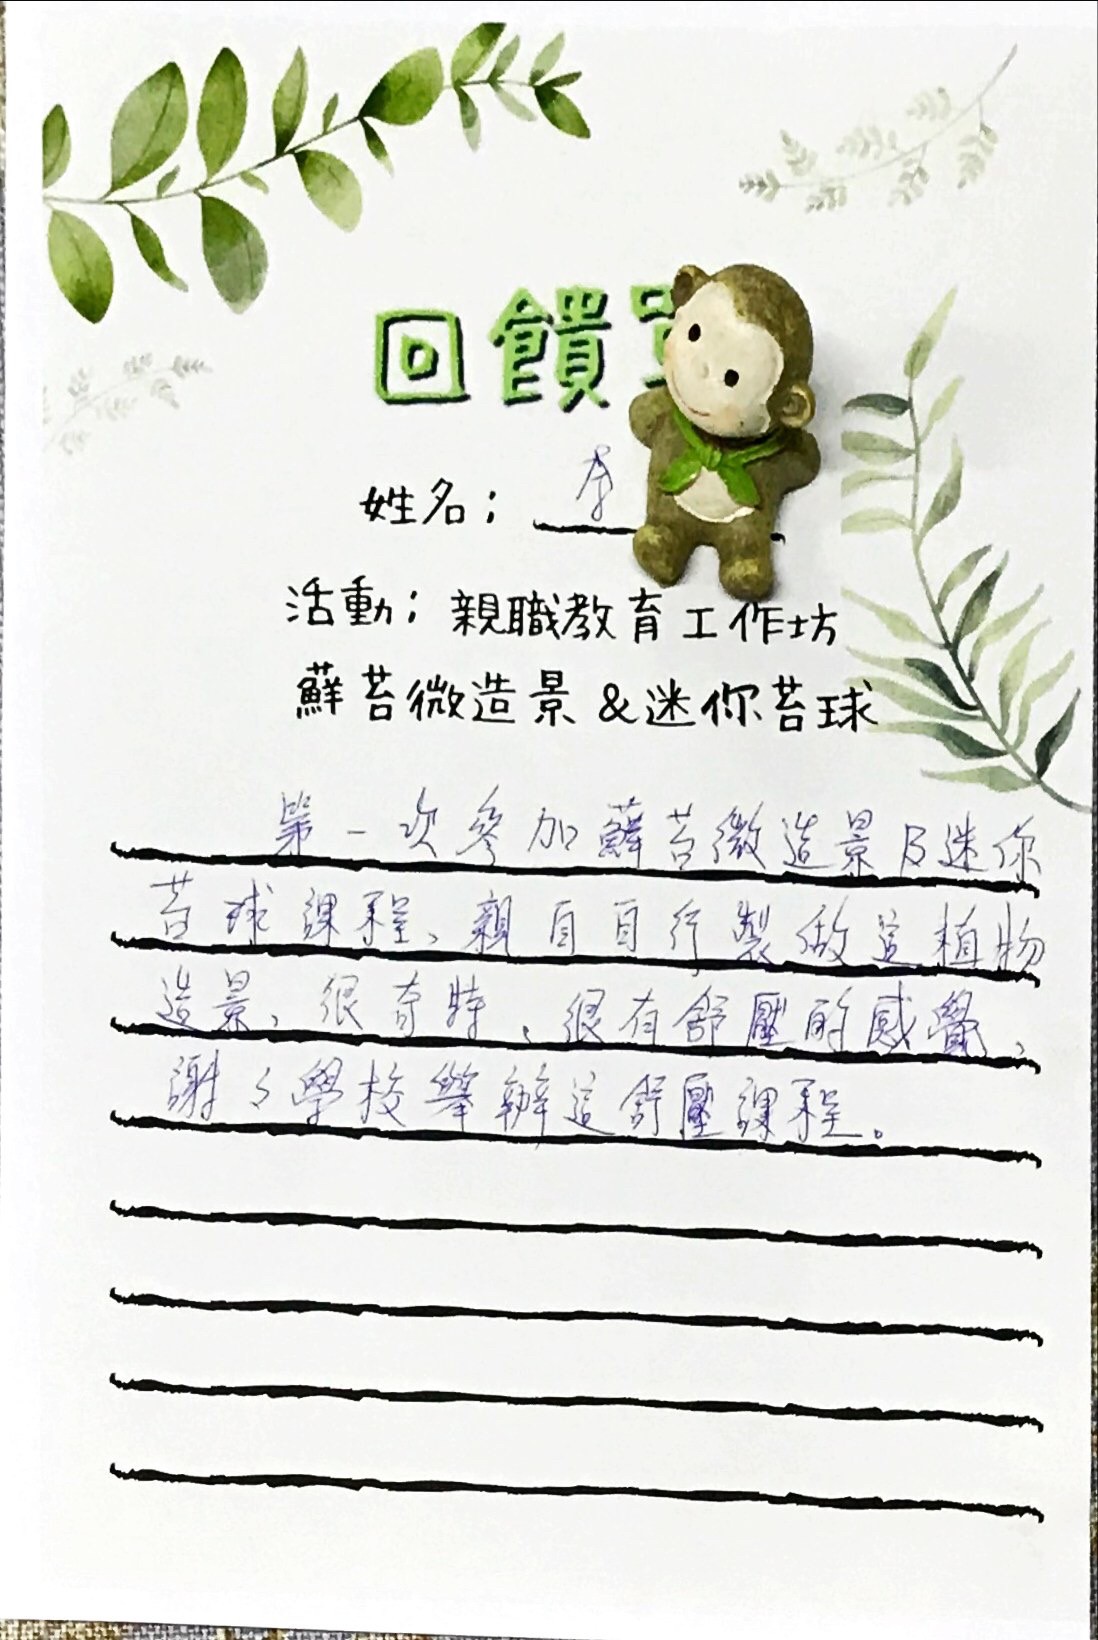 回饋
姓名；李
活動；親職教育工作坊
蘚苔微造景&迷你苔球
第一次參加蘚苔微造景及迷你
苔球課程、親自自行製做這植物
造景、很奇特、很有舒壓的感覺、
謝々學校舉辦這舒壓課程。